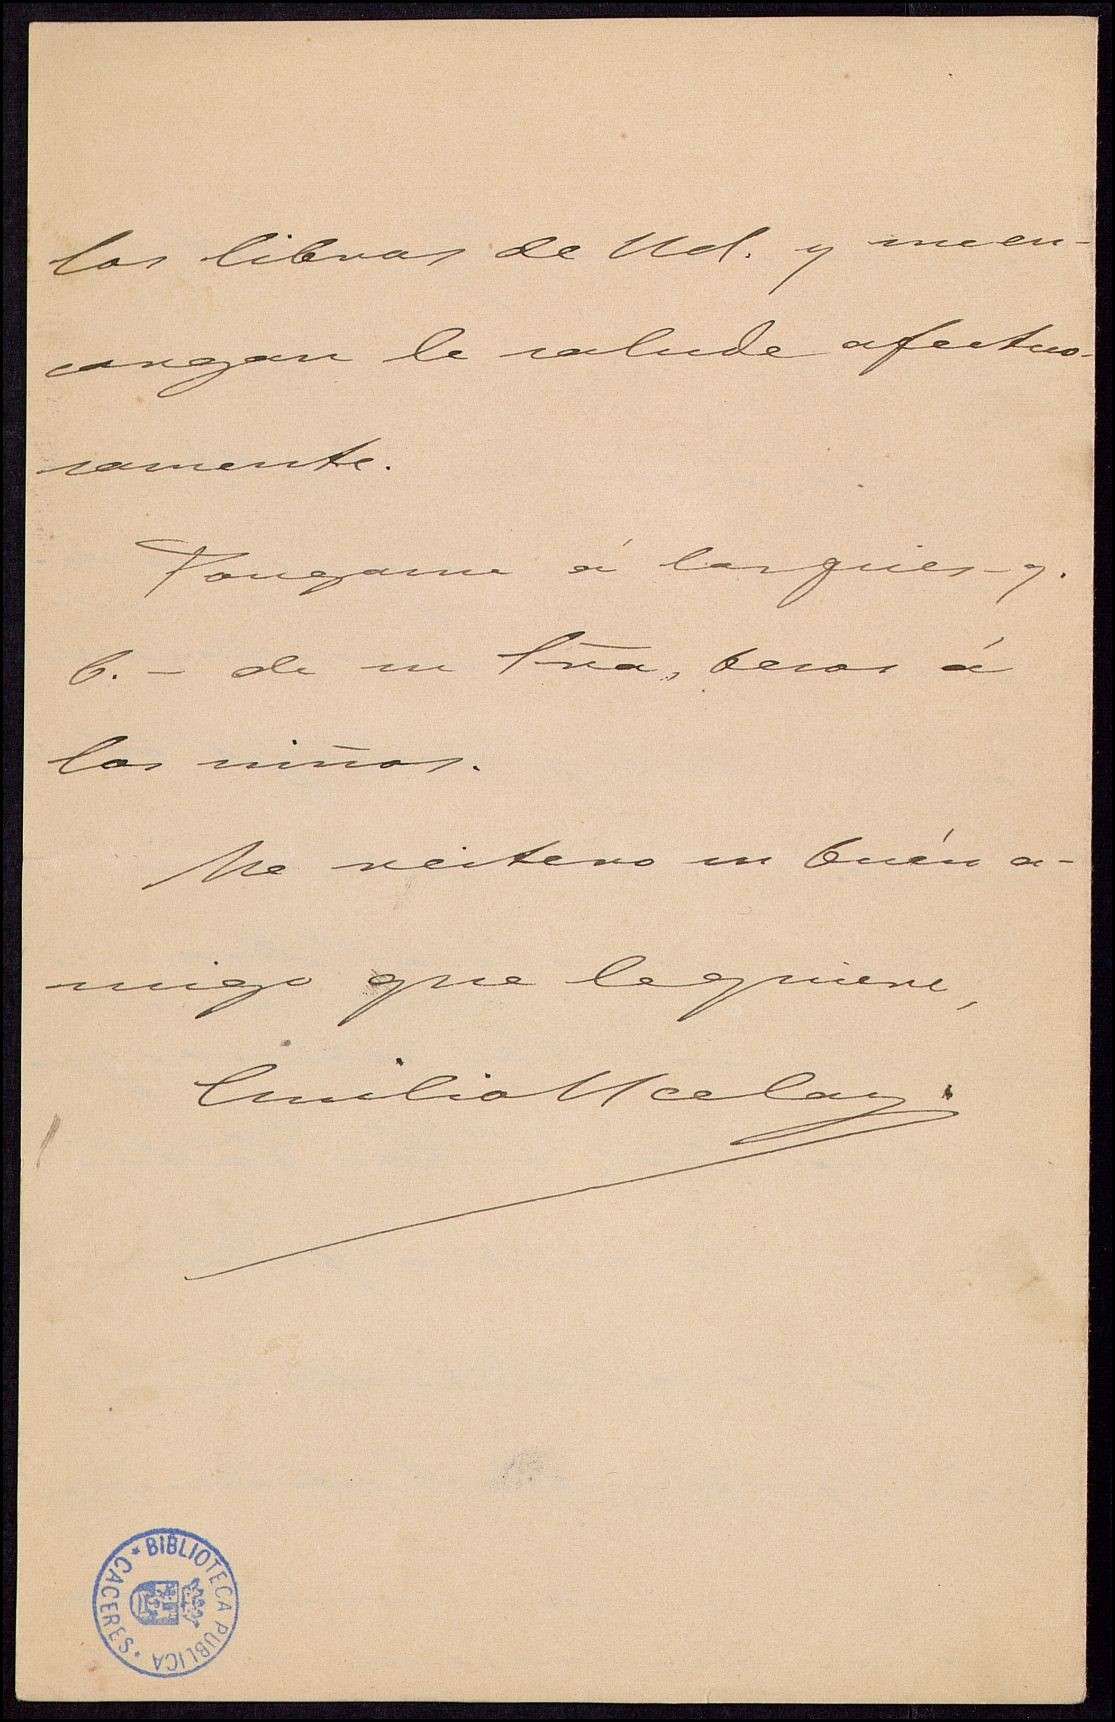 los libros de Ud. y me en-
cargan le salude afectuo-
samente.
Pongame á los pies - q.
b. - de su Sra, besos á
los niños.
Me reitero su buén a-
migo que le quiere,
Emilio H Celay.
* BIBLIOTECA PUBLICA * CACERES